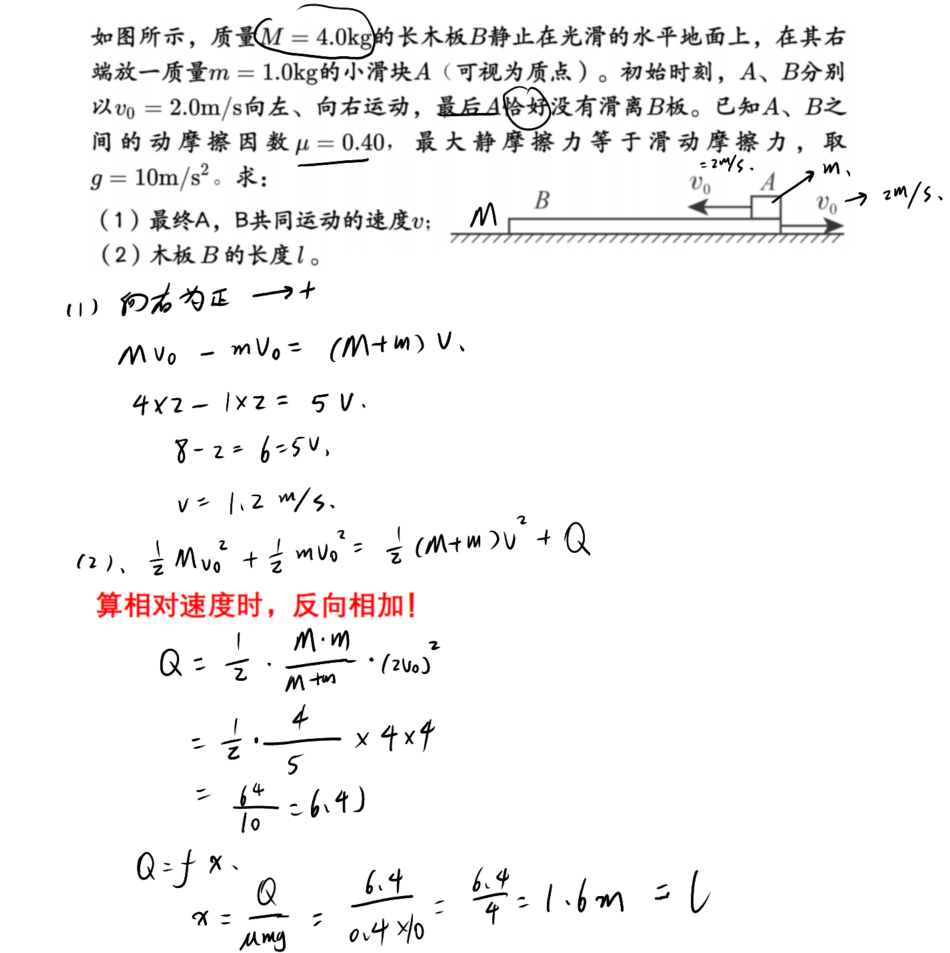 如图所示，质量M = 4.0kg的长木板B静止在光滑的水平地面上，在其右
端放一质量m = 1.0kg的小滑块A（可视为质点）。初始时刻，A、B分别
以v₀ = 2.0m/s向左、向右运动，最后A恰好没有滑离B板。已知A、B之
间的动摩擦因数μ = 0.40，最大静摩擦力等于滑动摩擦力，取
g = 10m/s²。求：
（1）最终A，B共同运动的速度v；
（2）木板B的长度l。
=2m/s.
v₀
A
m、
B
M
v₀ → 2m/s、
(1) 向右为正 →+
Mv₀ - mv₀ = (M+m) v、
4×2 - 1×2 = 5v.
8-2 = 6 = 5v,
v = 1.2 m/s.
(2)、½Mv₀² + ½mv₀² = ½(M+m)v² + Q
算相对速度时，反向相加！
Q = 1/2 · M·m/M+m · (2v₀)²
= 1/2 · 4/5 × 4×4
= 64/10 = 6.4J
Q = f x、
x = Q/μmg = 6.4/0.4×10 = 6.4/4 = 1.6m = l